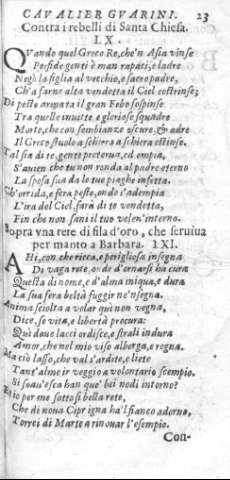 CAVALIER GVARINI. 23
Contra i rebelli di Santa Chiesa.
LX.
QVando quel Greco Re, che'n Asia vinse
Perfide genti è man rapaci, e ladre
Negò la figlia al vecchio, e sacro padre,
Ch'a farne alta vendetta il Ciel costrinse;
Di peste armata il gran Febo sospinse
Tra quelle inuitte e gloriose squadre
Morte, che con sembianze oscure, & adre
Il Greco stuolo a schiera a schiera estinse.
Tal fia di te gente proterua, ed empia,
S'auien che tu non renda al padre eterno
La sposa sua da le tue piaghe infetta.
Ch'orrida, e fera peste, onde s'adempia
L'ira del Ciel, farà di te vendetta,
Fin che non sani il tuo velen'interno.
Sopra vna rete di fila d'oro, che seruiua
per manto a Barbara. LXI.
AHi, con che ricca, e peregrina insegna
Di vaga rete, onde d'ornarsi ha cura
Questa di nome, e d'alma iniqua, e dura
La sua fera beltà fuggir ne'nsegna.
Anima sciolta a volar quì non vegna,
Dice, se vita, e libertà procura:
Quì doue lacci ordisce, e strali indura
Amor, che nel mio viso alberga, e regna.
Ma ciò lasso, che val s'ardite, e liete
Tant'alme ir veggio a volontario scempio.
Si soau'esca han que' bei nodi intorno?
Et io per me sotto sì bella rete,
Che di noua Ciprigna ha'l fianco adorno,
Torrei di Marte a rinouar l'esempio.
Con-